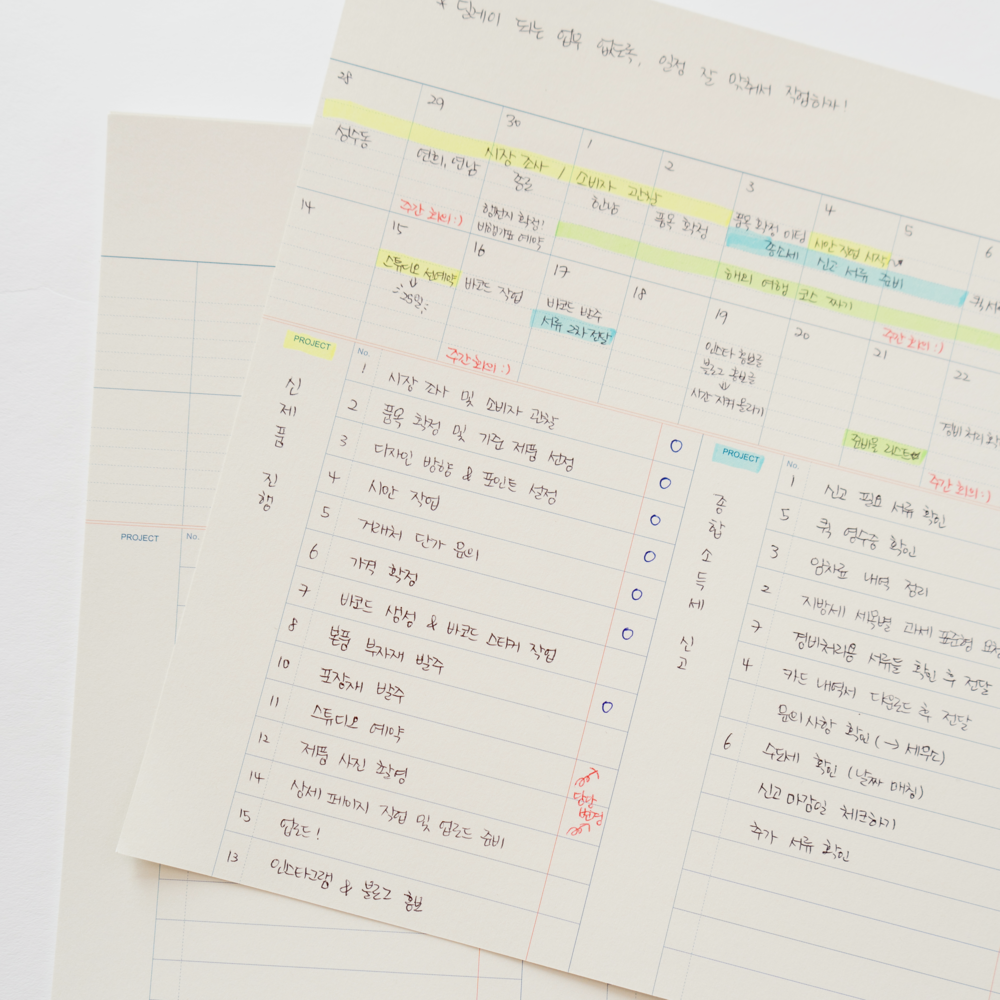 * 딜레이 되는 업무 없도록, 일정 잘 맞춰서 작업하자!
28 29 30 1 2 3 4 5 6
시장 조사 / 소비자 관찰
성수동
연희, 연남
종로
한남
품목 확정
품목 확정 미팅
시안 작업 시작
주간 회의 :)
행선지 확정!
비행기표 예약
종소세 신고 서류 준비
해외 여행 코스 짜기
14 15 16 17 18 19 20 21 22
스튜디오 선예약
↓
25일
바코드 작업
바코드 발주
서류 2차 전달
주간 회의 :)
인스타 홍보글
블로그 홍보글
↓
시간 지켜 올리기
주간 회의 :)
준비물 리스트
경비 처리
주간 회의 :)
PROJECT No.
신제품 진행
1 시장 조사 및 소비자 관찰
2 품목 확정 및 기준 제품 선정
3 디자인 방향 & 포인트 설정
4 시안 작업
5 거래처 단가 문의
6 가격 확정
7 바코드 생성 & 바코드 스티커 작업
8 본품 부자재 발주
10 포장재 발주
11 스튜디오 예약
12 제품 사진 촬영
14 상세 페이지 작업 및 업로드 준비
15 업로드!
13 인스타그램 & 블로그 홍보
담당
변경
PROJECT No.
종합소득세 신고
1 신고 필요 서류 확인
5 퀵 영수증 확인
3 임차료 내역 정리
2 지방세 세목별 과세 표준형 요청
7 경비처리용 서류들 확인 후 전달
4 카드 내역서 다운로드 후 전달
문의사항 확인 (→ 세무소)
6 수도세 확인 (날짜 매칭)
신고 마감일 체크하기
추가 서류 확인
PROJECT No.